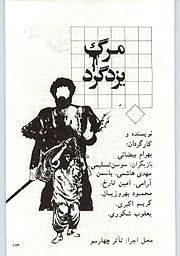 مرگ
یزدگرد
نویسنده و
کارگردان:
بهرام بیضائی
بازیگران: سوسن تسلیمی
مهدی هاشمی. یاسمن
آرامی. امین تارخ.
محمود بهروزیان.
کریم اکبری.
یعقوب شکوری.
محل اجرا: تآتر چهارسو